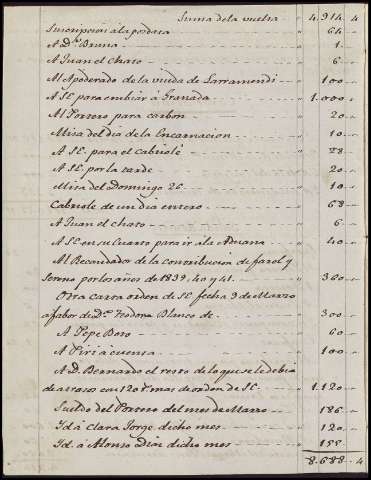 Suma de la vuelta 4.914 4
Suscripcion á la posdata 64
A Dª Bruna 1
A Juan el Chato 6
Al Apoderado de la viuda de Larramendi 100
A SE para embiar á Granada 1.000
Al Portero para carbon 20
Misa del dia de la Encarnacion 10
A SE. para el Cabriolé 28
A SE. por la tarde 20
Misa del Domingo 26 10
Cabriole de un dia entero 68
A Juan el chato 6
A SE en su Cuarto para ir á la Aduana 40
Al Recaudador de la contribucion de farol y
Sereno por los años de 1839. 40 y 41. 360
Otra carta orden de SE fecha 3 de Marzo
a favor de Dª Teodora Blanco de 300
A Pepe Boro 60
A Piri á cuenta 100
A D. Bernardo el resto de lo que se le debia
de atrasos con 120 r. mas de orden de SE. 1.120
Sueldo del Portero del mes de Marzo 186
Yd á Clara Jorge dicho mes 120
Yd. á Alonso Diaz dicho mes 155
8.688 4